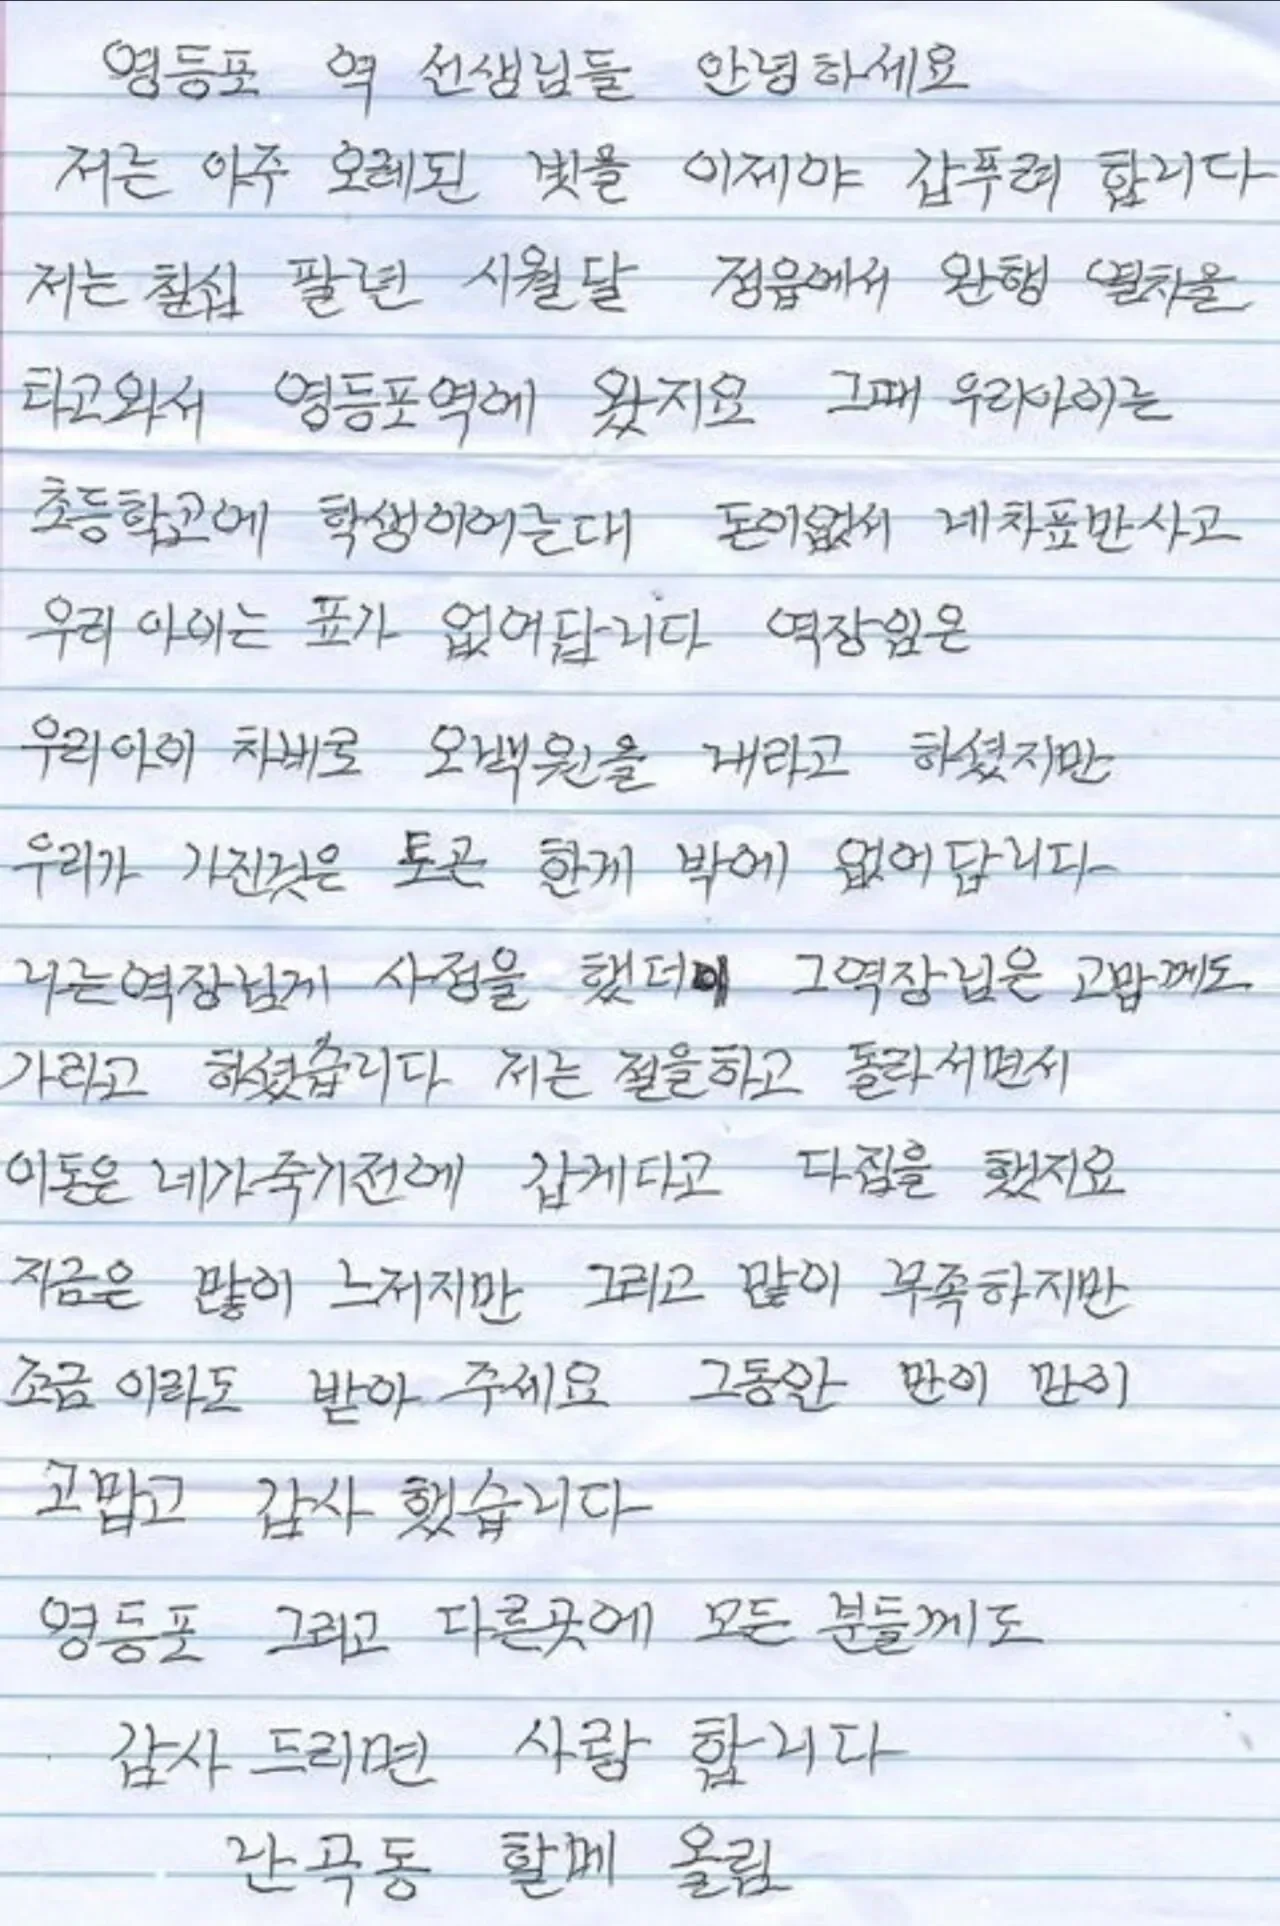 영등포 역 선생님들 안녕하세요
저른 아주 오레된 빛을 이제야 갑푸려 합니다
저는 칠십 팔년 시월달 정읍에서 완행 열차을
타고와서 영등포역에 왔지요 그때 우리아이는
초등학교에 학생이어는대 돈이없서 네차표만사고
우리 아이는 표가 없어답니다 역장임은
우리아이 차비로 오백원을 내라고 하셨지만
우리가 가진것은 토큰 한게 밖에 없어답니다
나는역장님게 사정을 했더이 그역장님은 고맙께도
가라고 하셨습니다 저는 절을하고 돌라서면서
이돈은 네가죽기전에 갑게다고 다집을 했지요
지금은 많이 느저지만 그리고 많이 부족하지만
조금 이라도 받아 주세요 그동안 만이 만이
고맙고 감사 했습니다
영등포 그리고 다른곳에 모든 분들께도
감사 드리면 사랑 합니다
란곡동 할메 올림